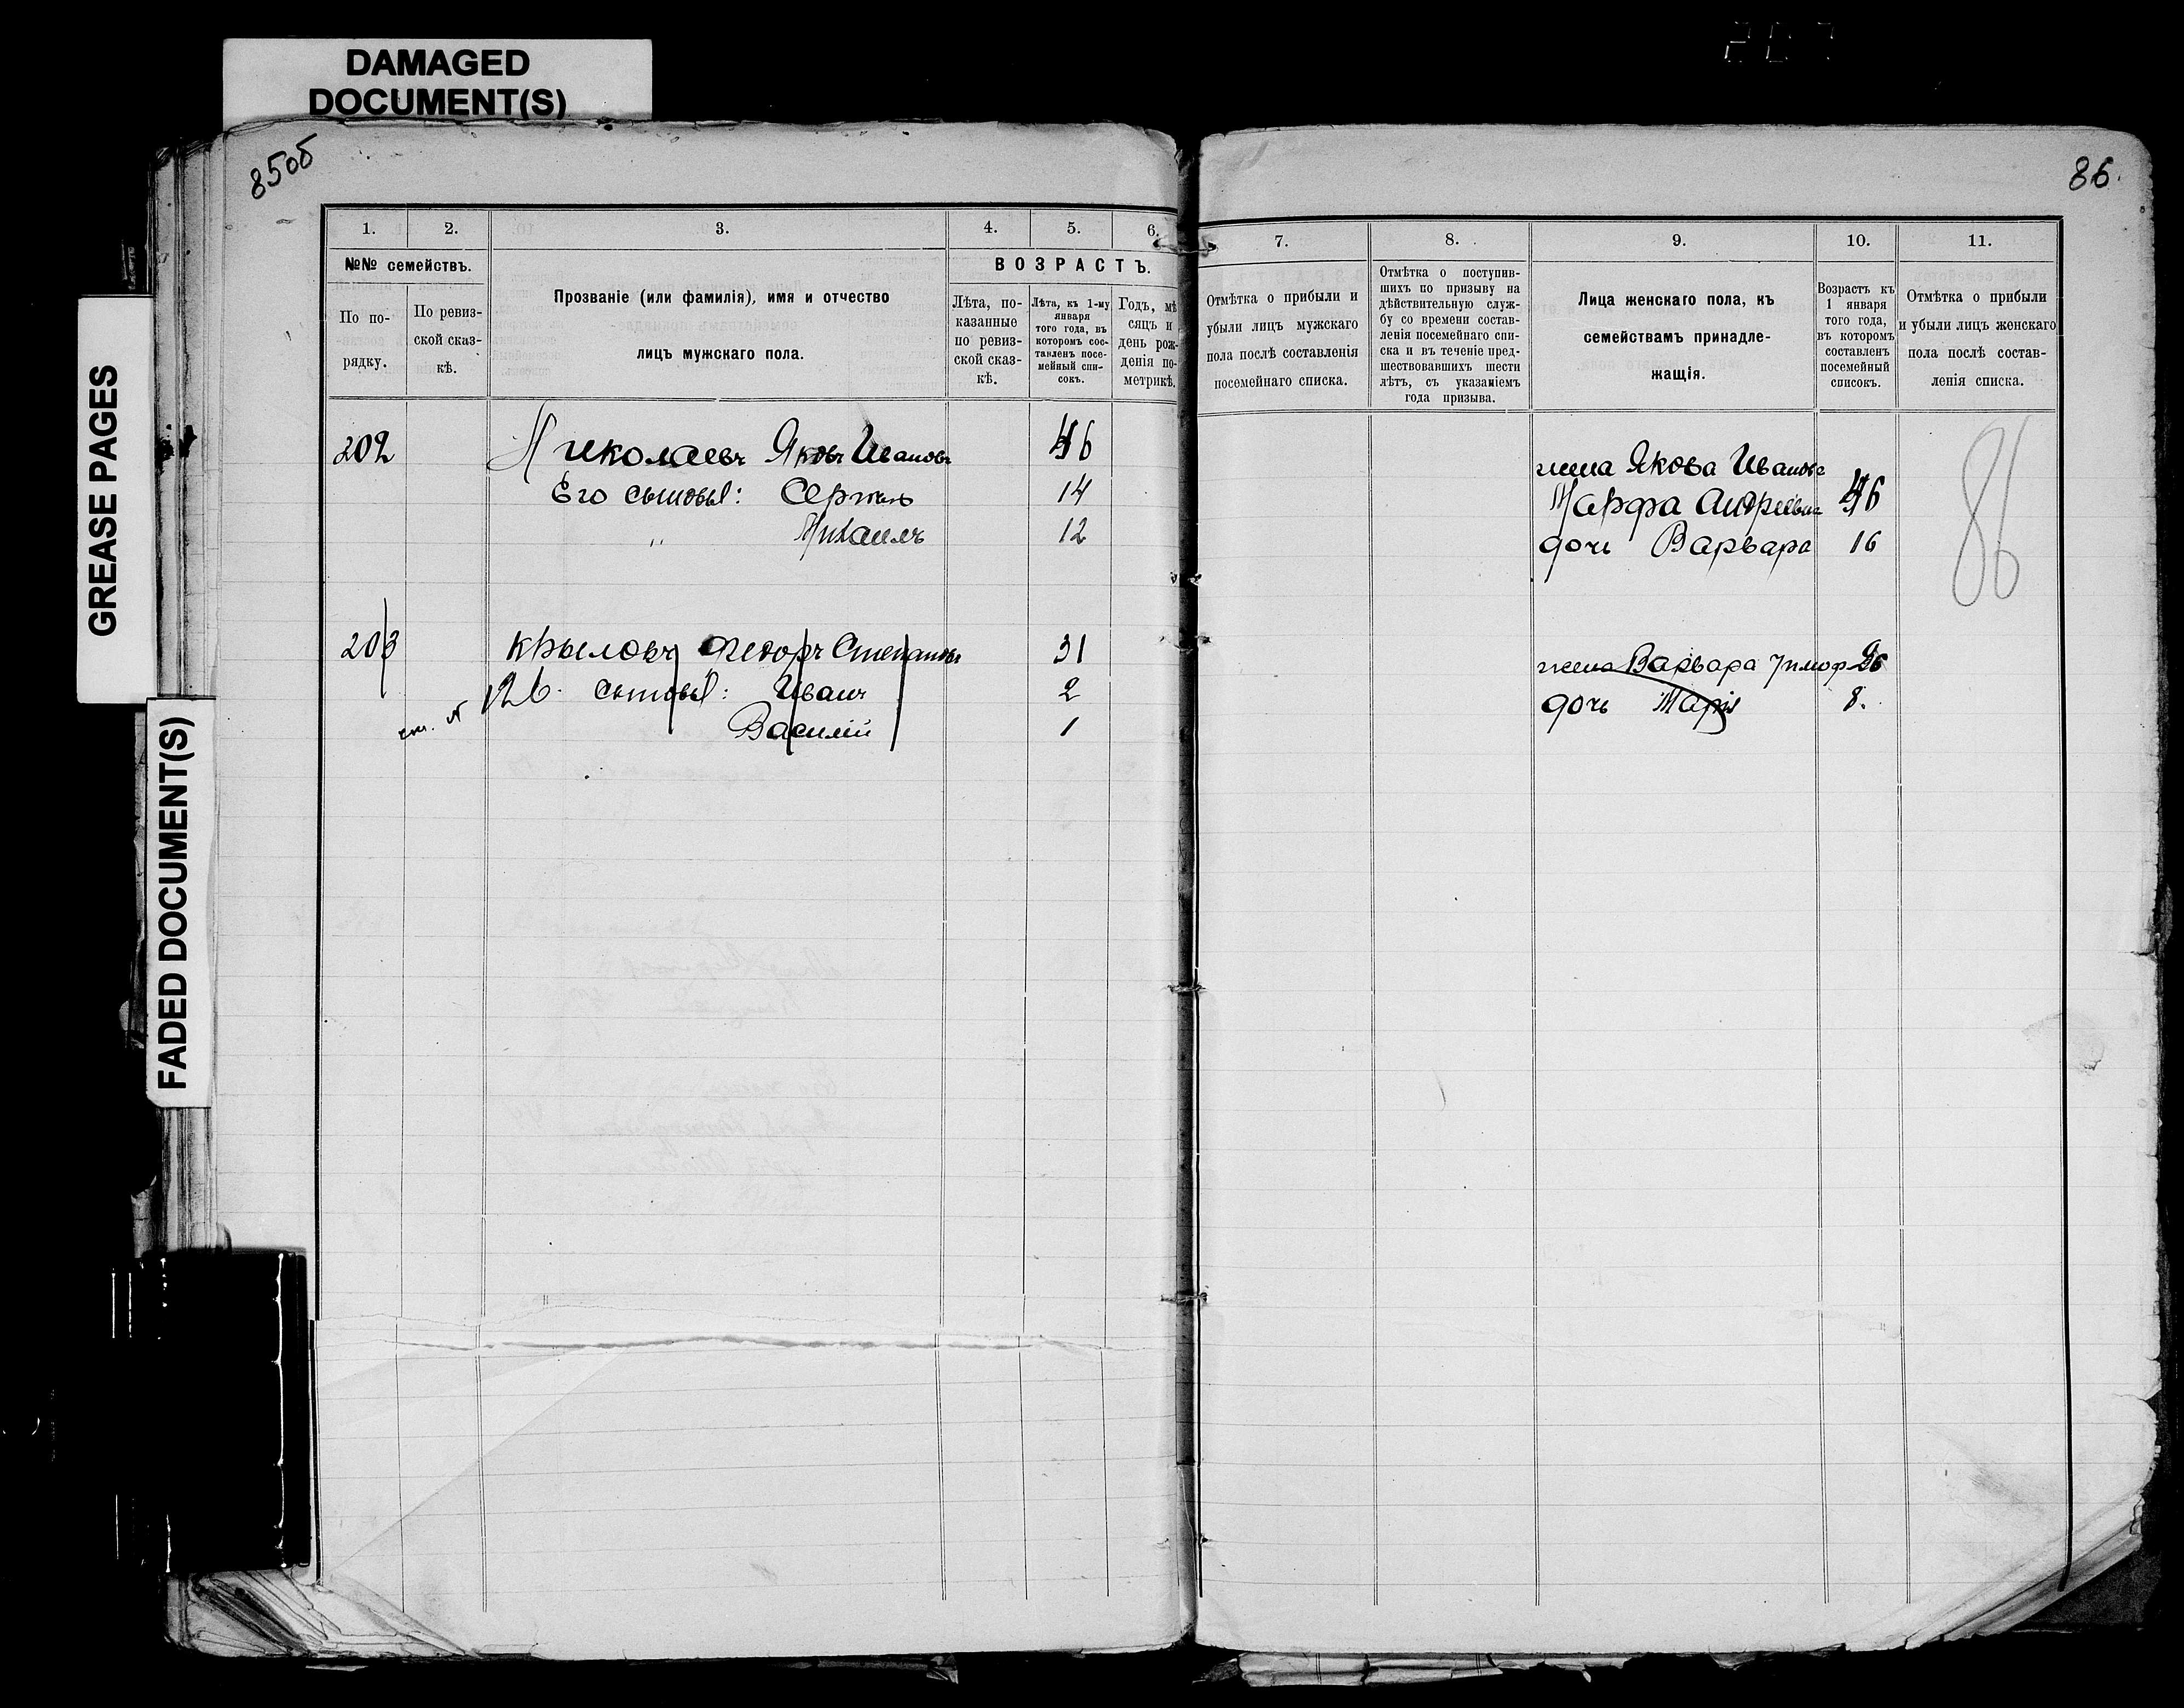 DAMAGED
DOCUMENT(S)
GREASE PAGES
FADED DOCUMENT(S)
85об
1. 2. 3. 4. 5. 6.
№№ семействъ.
По по-
рядку.
По ревиз-
ской сказ-
кѣ.
Прозваніе (или фамилія), имя и отчество
лицъ мужскаго пола.
ВОЗРАСТЪ.
Лѣта, по-
казанные
по ревиз-
ской сказ-
кѣ.
Лѣта, къ 1-му
января
того года, въ
которомъ сос-
тавленъ посе-
мейный спи-
сокъ.
Годъ, мѣ
сяцъ и
день рож-
денія по-
метрикѣ.
202 Николаевъ Яковъ Ивановъ 46
Его сыновья: Сергѣй 14
" Михаилъ 12
203 Крыловъ Федоръ Степановъ 31
сыновья: Иванъ 2
см. № 126.
Василій 1
86.
7. 8. 9. 10. 11.
Отмѣтка о прибыли и
убыли лицъ мужскаго
пола послѣ составленія
посемейнаго списка.
Отмѣтка о поступив-
шихъ по призыву на
дѣйствительную служ-
бу со времени состав-
ленія посемейнаго спи-
ска и въ теченіе пред-
шествовавшихъ шести
лѣтъ, съ указаніемъ
года призыва.
Лица женскаго пола, къ
семействамъ принадле-
жащія.
Возрастъ къ
1 января
того года,
въ которомъ
составленъ
посемейный
списокъ.
Отмѣтка о прибыли
и убыли лицъ женскаго
пола послѣ состав-
ленія списка.
жена Якова Иванова
Марфа Андреевна 46
дочь Варвара 16
86
жена Варвара Тимоф 26
дочь Марія 8.